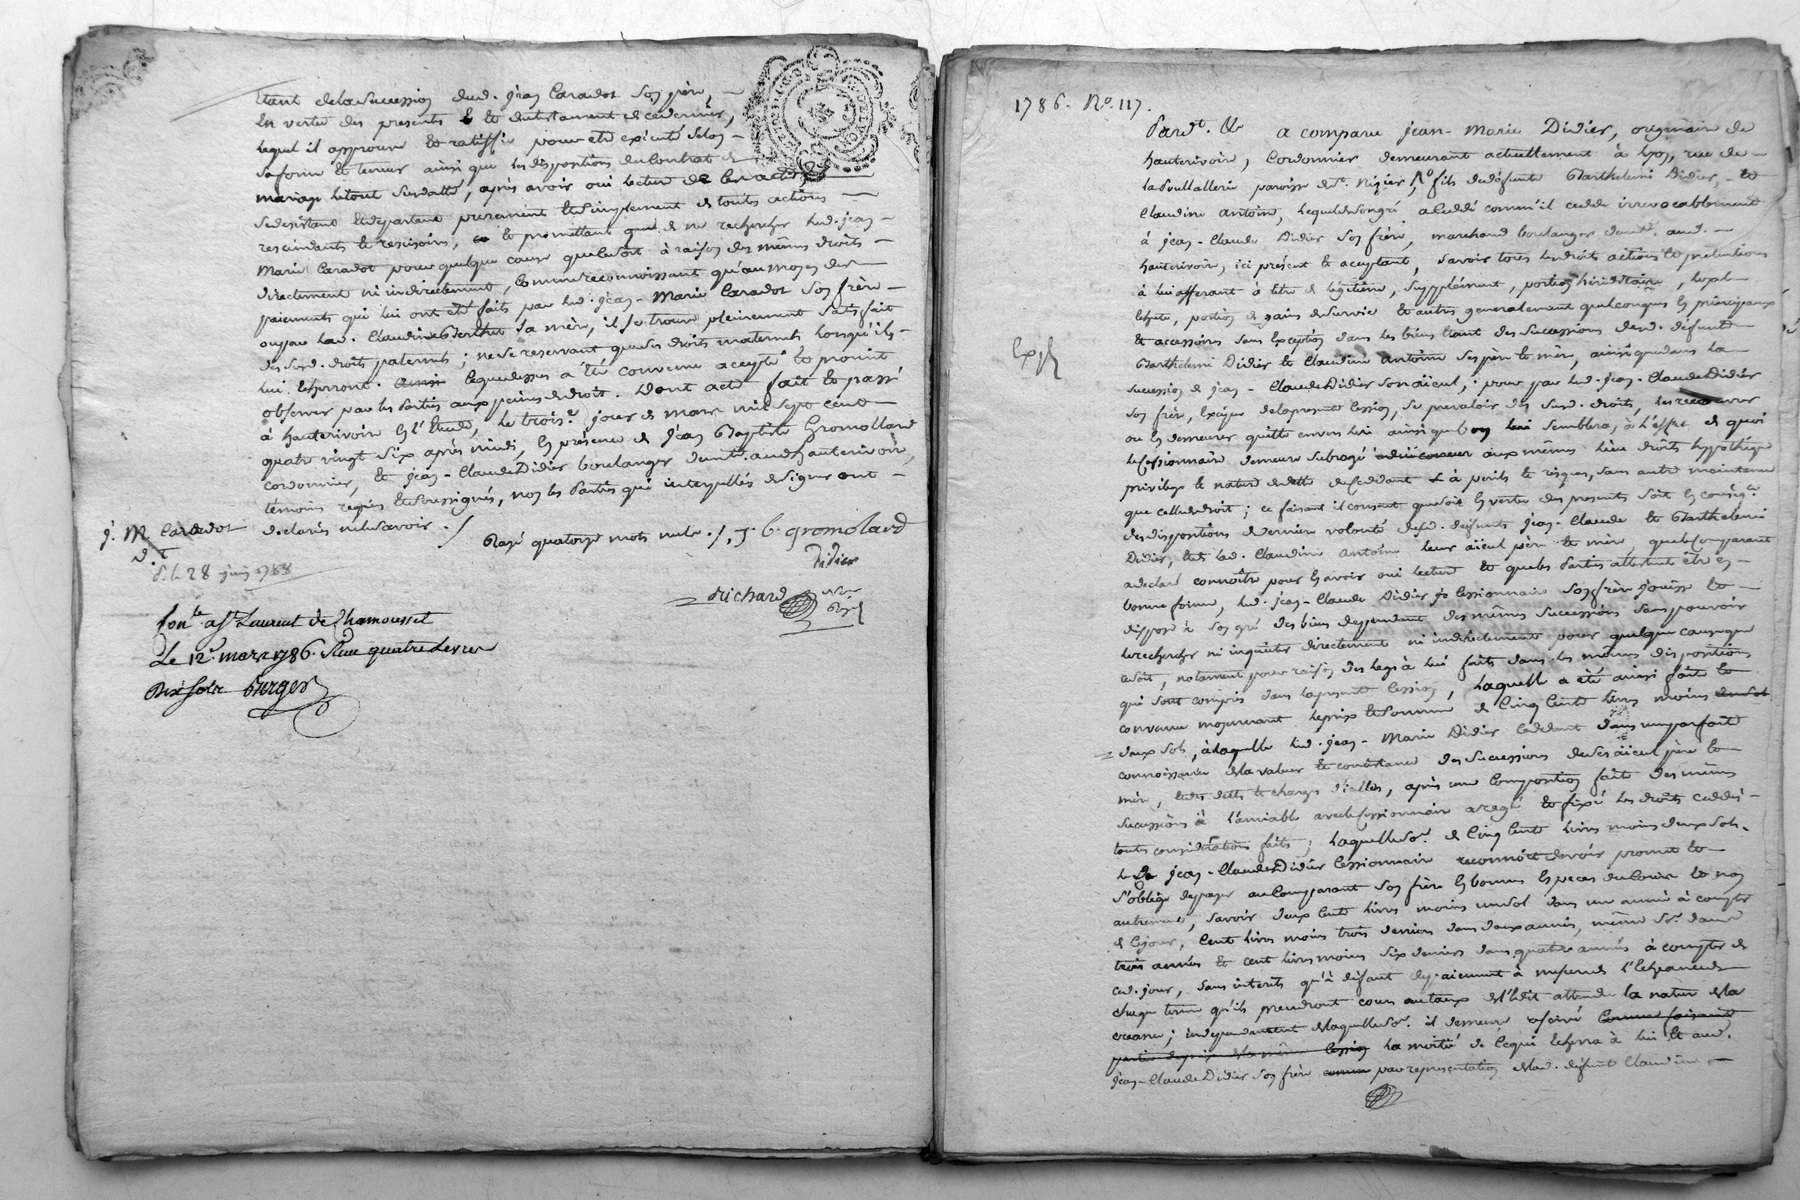 étant de la succession dud. jean Caradot son père,
en vertu des presents & et du testament de ce dernier,
lequel il approuve et ratiffie pour etre exécuté selon
sa forme et teneur ainsi que les dispositions du Contrat de
mariage le tout susdatté, après avoir oui lecture de ces actes
se desistant et departant purement et simplement de toutes actions
rescindants et rescisoirs, et promettant de ne rechercher led. jean-
Marie Caradot pour quelque cause que ce soit à raison des mêmes droits
directement ni indirectement, Comme reconnoissant qu'au moyen des
paiements qui lui ont été faits par led. jean-Marie Caradot son frère
ou par lad. Claudine Berthet sa mère, il se trouve pleinement satisfait
des susd. droits paternels; ne se reservant que ses droits maternels lorsqu'ils
lui echerront. Ainsi ce que dessus a été convenu accepté et promis
observer par les Parties aux peines de droit. Dont acte fait et passé
à hauterivoire en l'Etude, le trois.e jour de mars mil sept cent
quatre vingt six après midi, en présence de jean Baptiste Gromollard
cordonnier, et jean-Claude Didier boulanger demt. aud. hauterivoire,
témoins requis et soussignés, non les Parties qui interpellés de signer ont
declarés ne le savoir ./
j. M. Caradot
d. t.
Rayé quatorze mots nuls ./. J. b. gromolard
Didier
d. le 28 juin 1788
Richard
Nre.
Royal
Con.lé a St Laurent de Chamousset
Le 12e. mars 1786. Reçu quatre Livres
Dix sols Berger
1786. No. 117.
Pardt. &c a comparu jean-Marie Didier, originaire de
hauterivoire, Cordonnier demeurant actuellement à Lyon, rue de
la Poullallerie paroisse de St. Nizier, fils de defunts Barthelemi Didier, et
Claudine antoine, lequel de son gré a cedé comm'il cede irrevocablement
à jean-Claude Didier son frère, marchand boulanger demt. aud.
hauterivoire, ici présent et acceptant, savoir tous les droits actions et prétentions
à lui afferant à titre de légitime, supplément, portion héréditaire, loyal
echute, portion de gains de survie et autres generalement quelconques en principaux
et accessoires sans exception dans les biens étant des successions desd. défunts
Barthelemi Didier et Claudine antoine ses père et mère, ainsi que dans la
Exp.
succession de jean-Claude Didier son aïeul; pour par led. jean-Claude Didier
son frère, en vertu de la presente Cession, se prevaloir des susd. droits, les recouvrer
ou en demeurer quitte envers lui ainsi que bon lui semblera, à l'effet de quoi
le Cessionnaire demeure subrogé aux mêmes lieu droits hypothèque
privilege et nature de dette du Ceddant & à perils et risques, sans autre maintenue
que celle de droit; ce faisant il consent que soit en vertu des presents soit en conséqce.
des dispositions de dernière volonté desd. defunts jean-Claude et Barthelemi
Didier, et de lad. Claudine antoine leur aïeul père et mère, que le Comparant
a declaré connoître pour en avoir oui lecture et que les Parties attestent être en
bonne forme, led. jean-Claude Didier Cessionnaire son frère jouisse et
dispose à son gré des biens dependant des mêmes successions sans pouvoir
le rechercher ni inquiéter directement ni indirectement pour quelque cause que
ce soit, notament pour raison des legs à lui faits dans les mêmes dispositions
qui sont compris dans la presente Cession, laquelle a été ainsi faite et
convenue moyennant le prix et somme de Cinq Cents livres moins
deux sols, à laquelle led. jean-Marie Didier Cedant dans une parfaite
connoissance de la valeur et consistance des successions de ses aïeul père et
mère, et des dettes et charges d'icelles, après une Composition faite des mêmes
successions à l'amiable avec le Cessionnaire a reglé et fixé les droits cedés
toutes considérations faites; laquelle sc. de Cinq Cents livres moins deux sols,
led. jean-Claude Didier Cessionnaire reconnoît devoir promet et
s'oblige de payer au Comparant son frère en bonnes Especes du Cours et non
autrement, savoir, deux Cents livres moins un sol dans une année à compter
de Cejour, Cent livres moins trois deniers dans deux années, même se. dans
trois années et cent livres moins six deniers dans quatre années à compter de
ced. jour, sans interêts qu'à défaut de paiement à mesure de l'echeance de
chaque terme qu'ils prendront cours au taux de l'Edit attendu la nature de la
creance; independament de laquelle se. il demeure reservé Comme faisant
partie du prix de la même Cession la moitié de Ce qui echerra à lui et aud.
jean-Claude Didier son frère comme par representation de lad. defunte Claudine